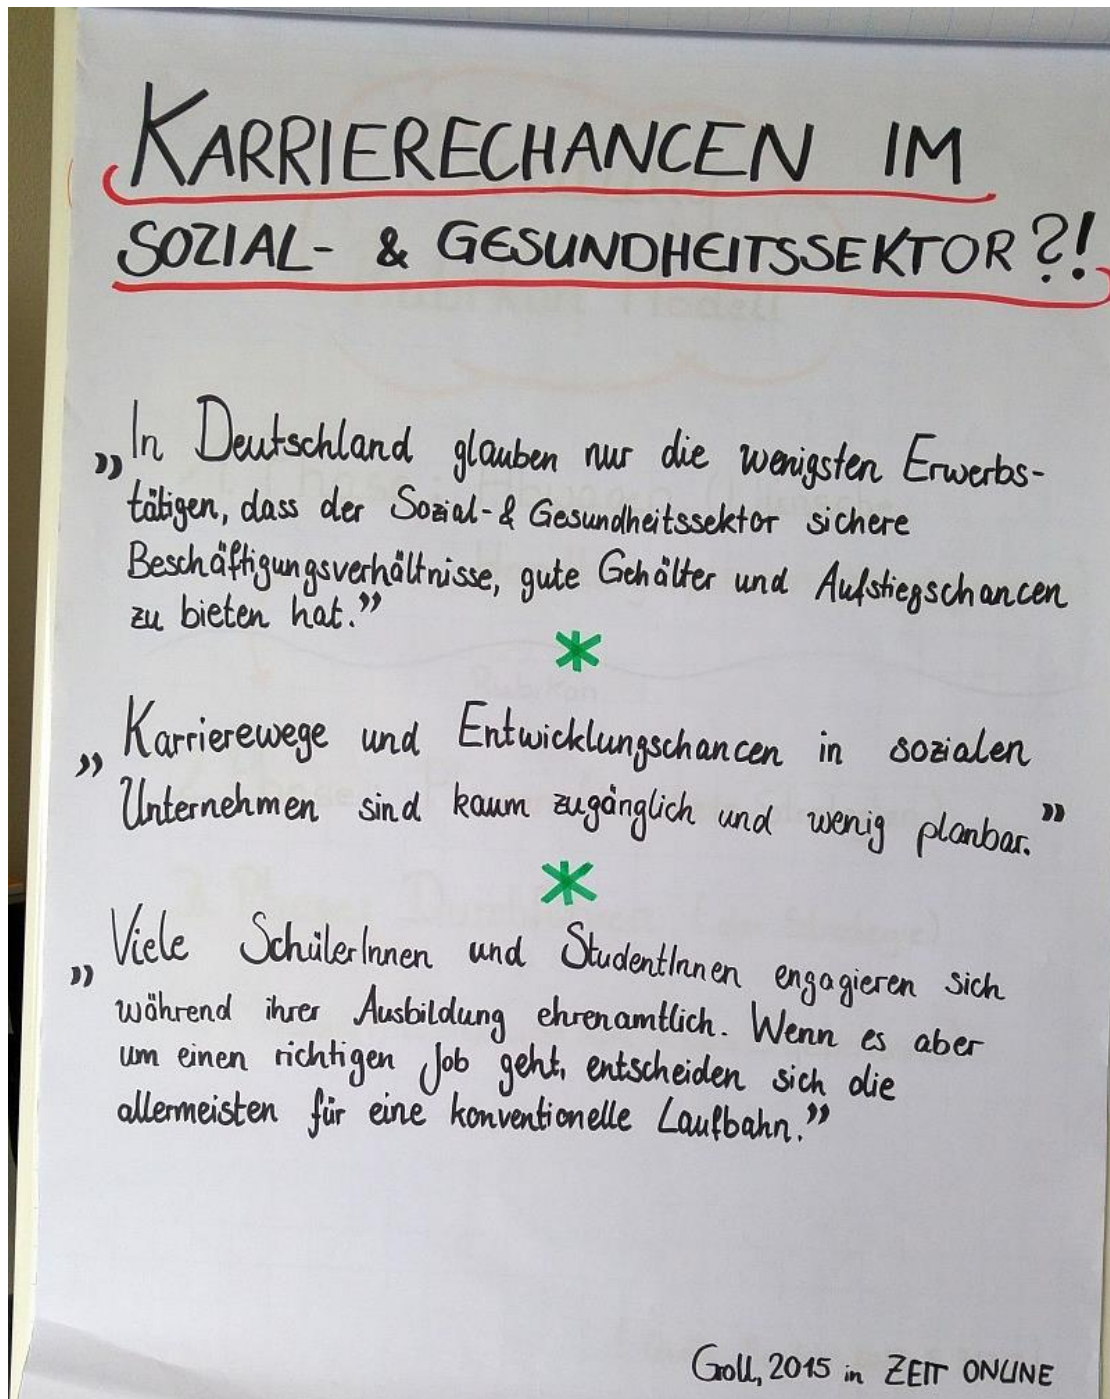 KARRIERECHANCEN IM
SOZIAL- & GESUNDHEITSSEKTOR?!
„In Deutschland glauben nur die wenigsten Erwerbs-
tätigen, dass der Sozial- & Gesundheitssektor sichere
Beschäftigungsverhältnisse, gute Gehälter und Aufstiegschancen
zu bieten hat.”
*
„Karrierewege und Entwicklungschancen in sozialen
Unternehmen sind kaum zugänglich und wenig planbar.”
*
„Viele SchülerInnen und StudentInnen engagieren sich
während ihrer Ausbildung ehrenamtlich. Wenn es aber
um einen richtigen Job geht, entscheiden sich die
allermeisten für eine konventionelle Laufbahn.”
Groll, 2015 in ZEIT ONLINE